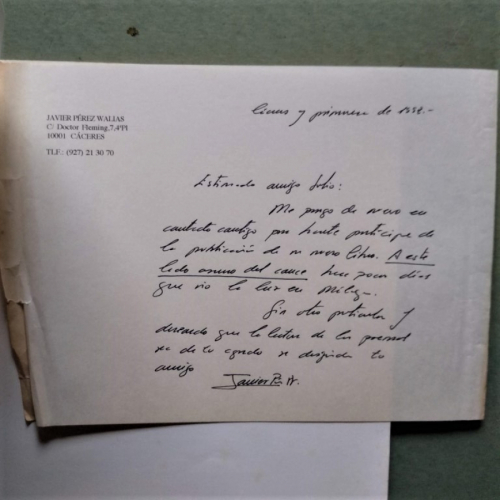 JAVIER PÉREZ WALIAS
C/ Doctor Fleming,7,4ºI
10001 CÁCERES
TLF.: (927) 21 30 70
y primavera de
Estimado amigo Julio:
Me pongo de nuevo en
contacto contigo por hacerte partícipe de
la publicación de mi nuevo libro. A este
lado oscuro del cauce hace pocos días
que vio la luz en
Sin otro particular y
deseando que la lectura de los poemas
sea de tu agrado se despide tu
amigo
Javier P. W.